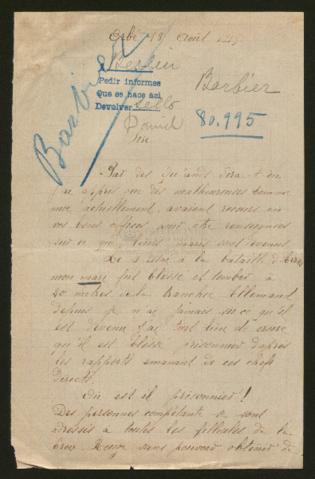 Barbier
Pedir informes
Que se hace así
Devolver sello
Barbier
80.995
Par des
j'ai appris que des malheureuses comme
moi actuellement, avaient recours
vos bons offices pour être renseignées
sur ce que leurs maris sont devenus
Le à la bataille d'
mon mari fut blessé et tombé à
20 mètres de la tranchée Allemande
depuis je n'ai jamais su ce qu'il
est devenu j'ai tout lieu de croire
qu'il est blessé prisonnier d'après
les rapports émanant de ces chefs
directs.
Où est il prisonnier!
Des personnes compétentes se sont
adressés à toutes les filiales de la
Croix Rouge sans pouvoir obtenir de